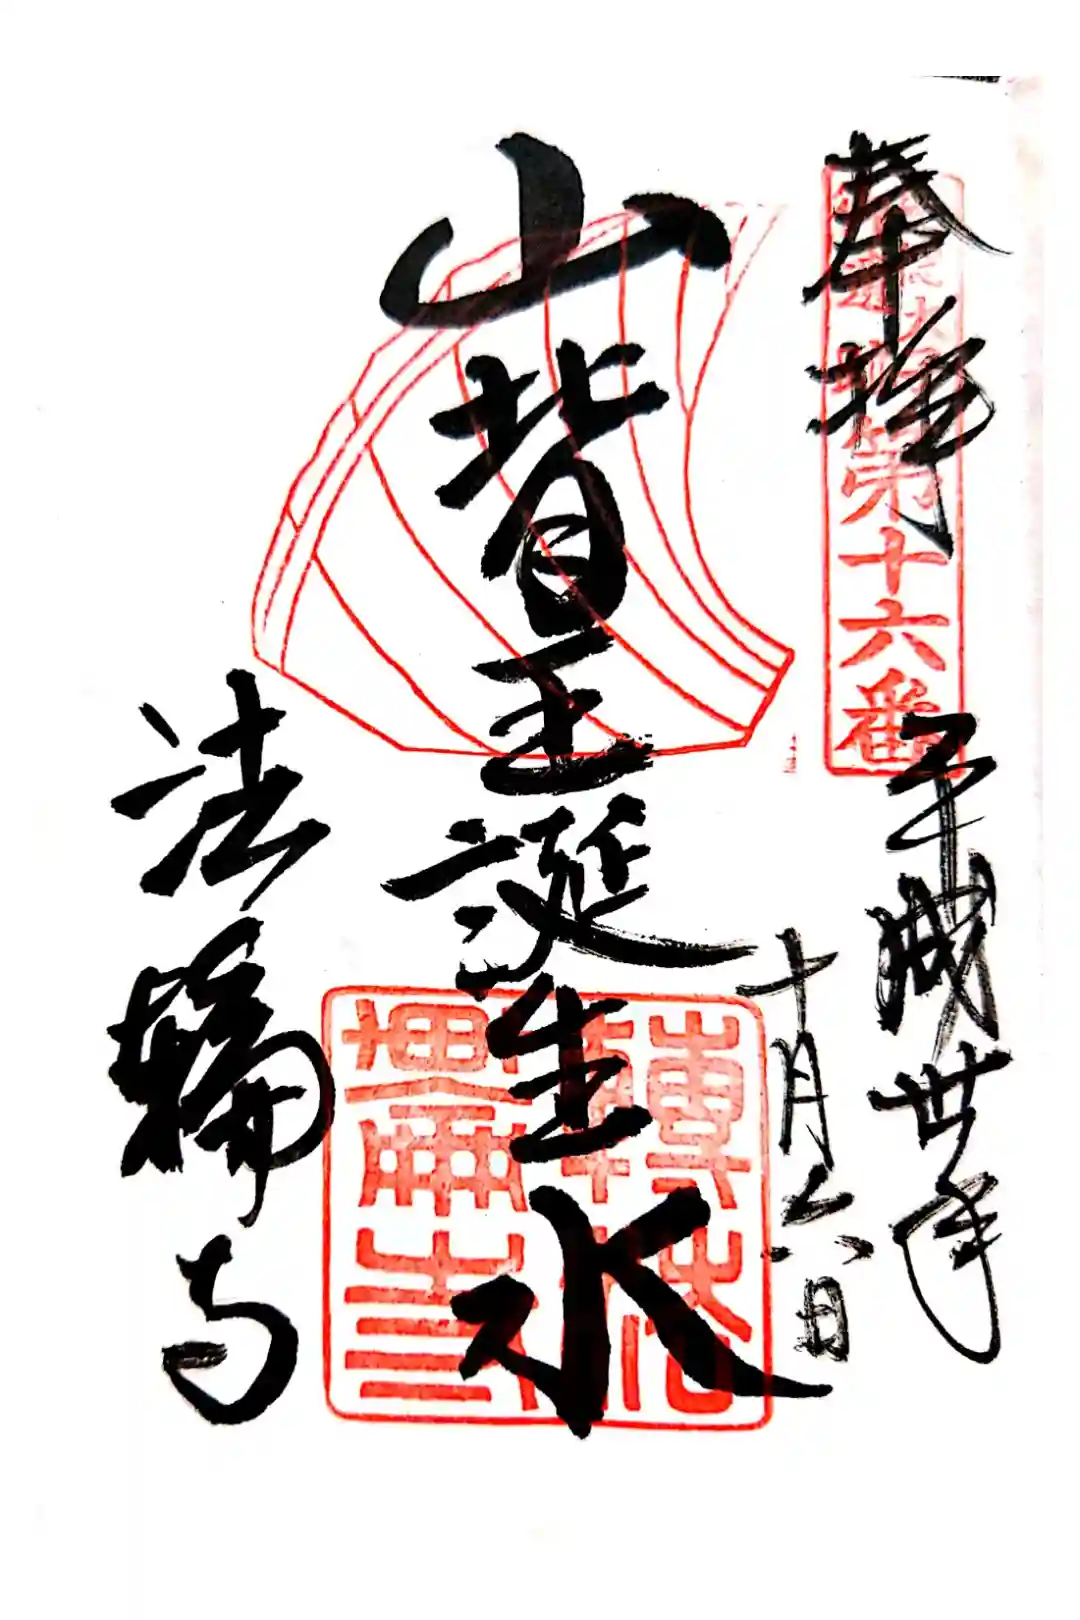 奉拝
第十六番
平成卅年
十月六日
山背王誕生水
法輪寺